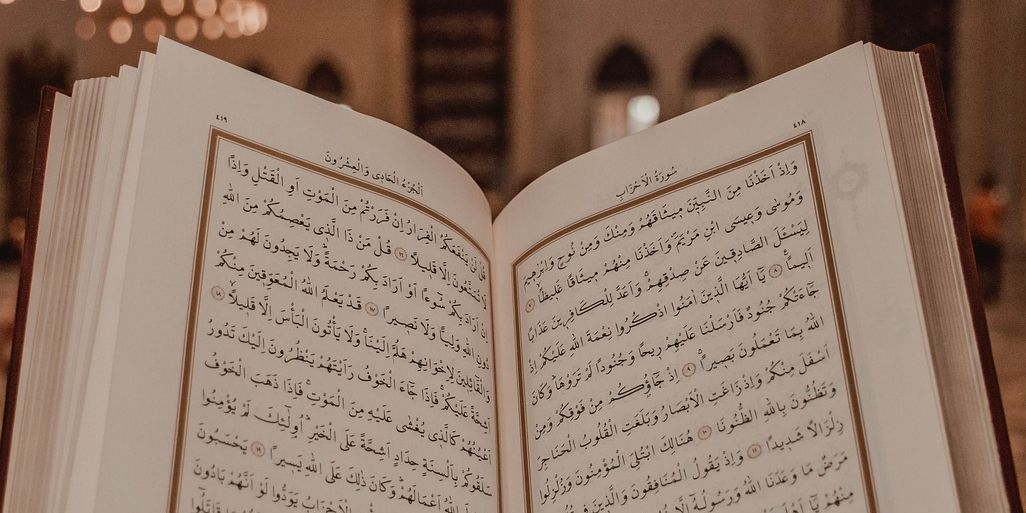 ٤١٨
سُورَةُ الْاَحْزَابِ
وَاِذْ اَخَذْنَا مِنَ النَّبِيّٖنَ مٖيثَاقَهُمْ وَمِنْكَ وَمِنْ نُوحٍ وَاِبْرٰهٖيمَ
وَمُوسٰى وَعٖيسَى ابْنِ مَرْيَمَ وَاَخَذْنَا مِنْهُمْ مٖيثَاقًا غَلٖيظًا ۞٧
لِيَسْـَٔلَ الصَّادِقٖينَ عَنْ صِدْقِهِمْ وَاَعَدَّ لِلْكَافِرٖينَ عَذَابًا
اَلٖيمًا ۞٨ يَٓا اَيُّهَا الَّذٖينَ اٰمَنُوا اذْكُرُوا نِعْمَةَ اللّٰهِ عَلَيْكُمْ اِذْ
جَٓاءَتْكُمْ جُنُودٌ فَاَرْسَلْنَا عَلَيْهِمْ رٖيحًا وَجُنُودًا لَمْ تَرَوْهَا وَكَانَ
اللّٰهُ بِمَا تَعْمَلُونَ بَصٖيرًا ۞٩ اِذْ جَٓاؤُ۫كُمْ مِنْ فَوْقِكُمْ وَمِنْ
اَسْفَلَ مِنْكُمْ وَاِذْ زَاغَتِ الْاَبْصَارُ وَبَلَغَتِ الْقُلُوبُ الْحَنَاجِرَ
وَتَظُنُّونَ بِاللّٰهِ الظُّنُونَا ۞١٠ هُنَالِكَ ابْتُلِيَ الْمُؤْمِنُونَ وَزُلْزِلُوا
زِلْزَالًا شَدٖيدًا ۞١١ وَاِذْ يَقُولُ الْمُنَافِقُونَ وَالَّذٖينَ
مَرَضٌ مَا وَعَدَنَا اللّٰهُ وَرَسُولُهُٓ
مِنْهُمْ يَٓا
٤١٩
اَلْجُزْءُ الْحَادٖي وَالْعِشْرُونَ
قُلْ لَنْ يَنْفَعَكُمُ الْفِرَارُ اِنْ فَرَرْتُمْ مِنَ الْمَوْتِ اَوِ الْقَتْلِ وَاِذًا
لَا تُمَتَّعُونَ اِلَّا قَلٖيلًا ۞١٦ قُلْ مَنْ ذَا الَّذٖي يَعْصِمُكُمْ مِنَ اللّٰهِ
اِنْ اَرَادَ بِكُمْ سُٓوءًا اَوْ اَرَادَ بِكُمْ رَحْمَةً وَلَا يَجِدُونَ لَهُمْ مِنْ
دُونِ اللّٰهِ وَلِيًّا وَلَا نَصٖيرًا ۞١٧ قَدْ يَعْلَمُ اللّٰهُ الْمُعَوِّقٖينَ مِنْكُمْ
وَالْقَٓائِلٖينَ لِاِخْوَانِهِمْ هَلُمَّ اِلَيْنَا وَلَا يَأْتُونَ الْبَأْسَ اِلَّا قَلٖيلًا ۞١٨
اَشِحَّةً عَلَيْكُمْ فَاِذَا جَٓاءَ الْخَوْفُ رَاَيْتَهُمْ يَنْظُرُونَ اِلَيْكَ تَدُورُ
اَعْيُنُهُمْ كَالَّذٖي يُغْشٰى عَلَيْهِ مِنَ الْمَوْتِ فَاِذَا ذَهَبَ الْخَوْفُ
سَلَقُوكُمْ بِاَلْسِنَةٍ حِدَادٍ اَشِحَّةً عَلَى الْخَيْرِ اُو۬لٰٓئِكَ لَمْ يُؤْمِنُوا
اللّٰهُ اَعْمَالَهُمْ وَكَانَ ذٰلِكَ عَلَى اللّٰهِ يَسٖيرًا ۞١٩ يَحْسَبُونَ
الْاَحْزَابُ يَوَدُّوا لَوْ اَنَّهُمْ بَادُونَ